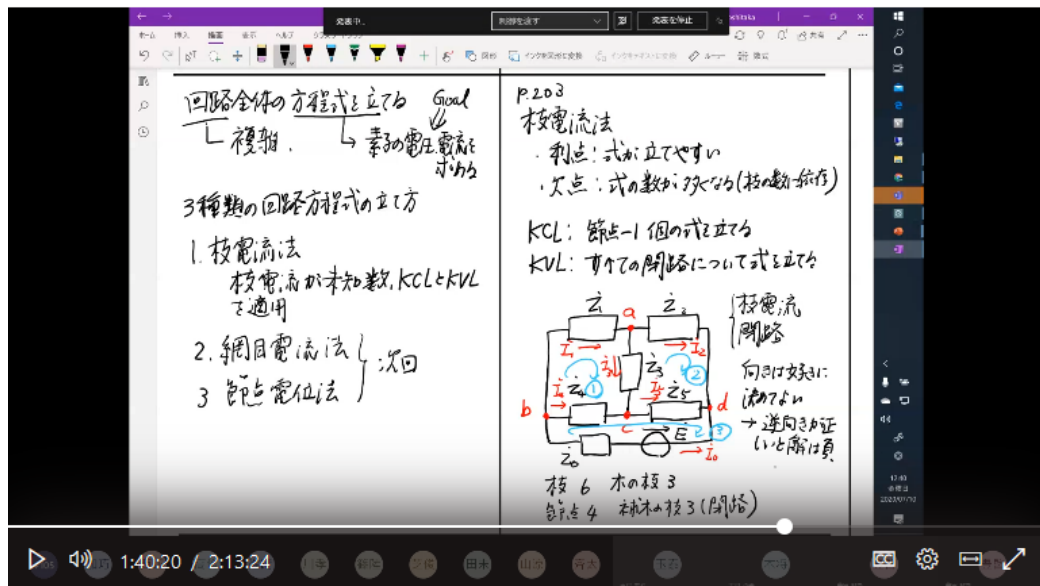 発表中.
発表を停止
ホーム
挿入
描画
表示
ヘルプ
共有
図形
インクを図形に変換
ルーラー
数式
回路全体の方程式を立てる
Goal
複雑.
素子の電圧.電流を
求める
3種類の回路方程式の立て方
1.枝電流法
枝電流が未知数,KCLとKVL
を適用
2.網目電流法
3 節点電位法
次回
P.203
枝電流法
・利点:式が立てやすい
・欠点:式の数が多くなる(枝の数に依存)
KCL: 節点-1個の式を立てる
KVL: すべての閉路について式を立てる
Ż₁
a
Ż₂
İ₁
İ₂
İ₃
Ż₃
İ₄
Ż₄
①
②
İ₅
Ż₅
b
c
d
Ė
③
Ż₀
İ₀
枝電流
閉路
向きは好きに
決めてよい
→逆向きが正
しいと解は負
枝 6 木の枝 3
節点 4 補木の枝 3(閉路)
12:40
金曜日
2020/07/10
1:40:20 / 2:13:24
CC